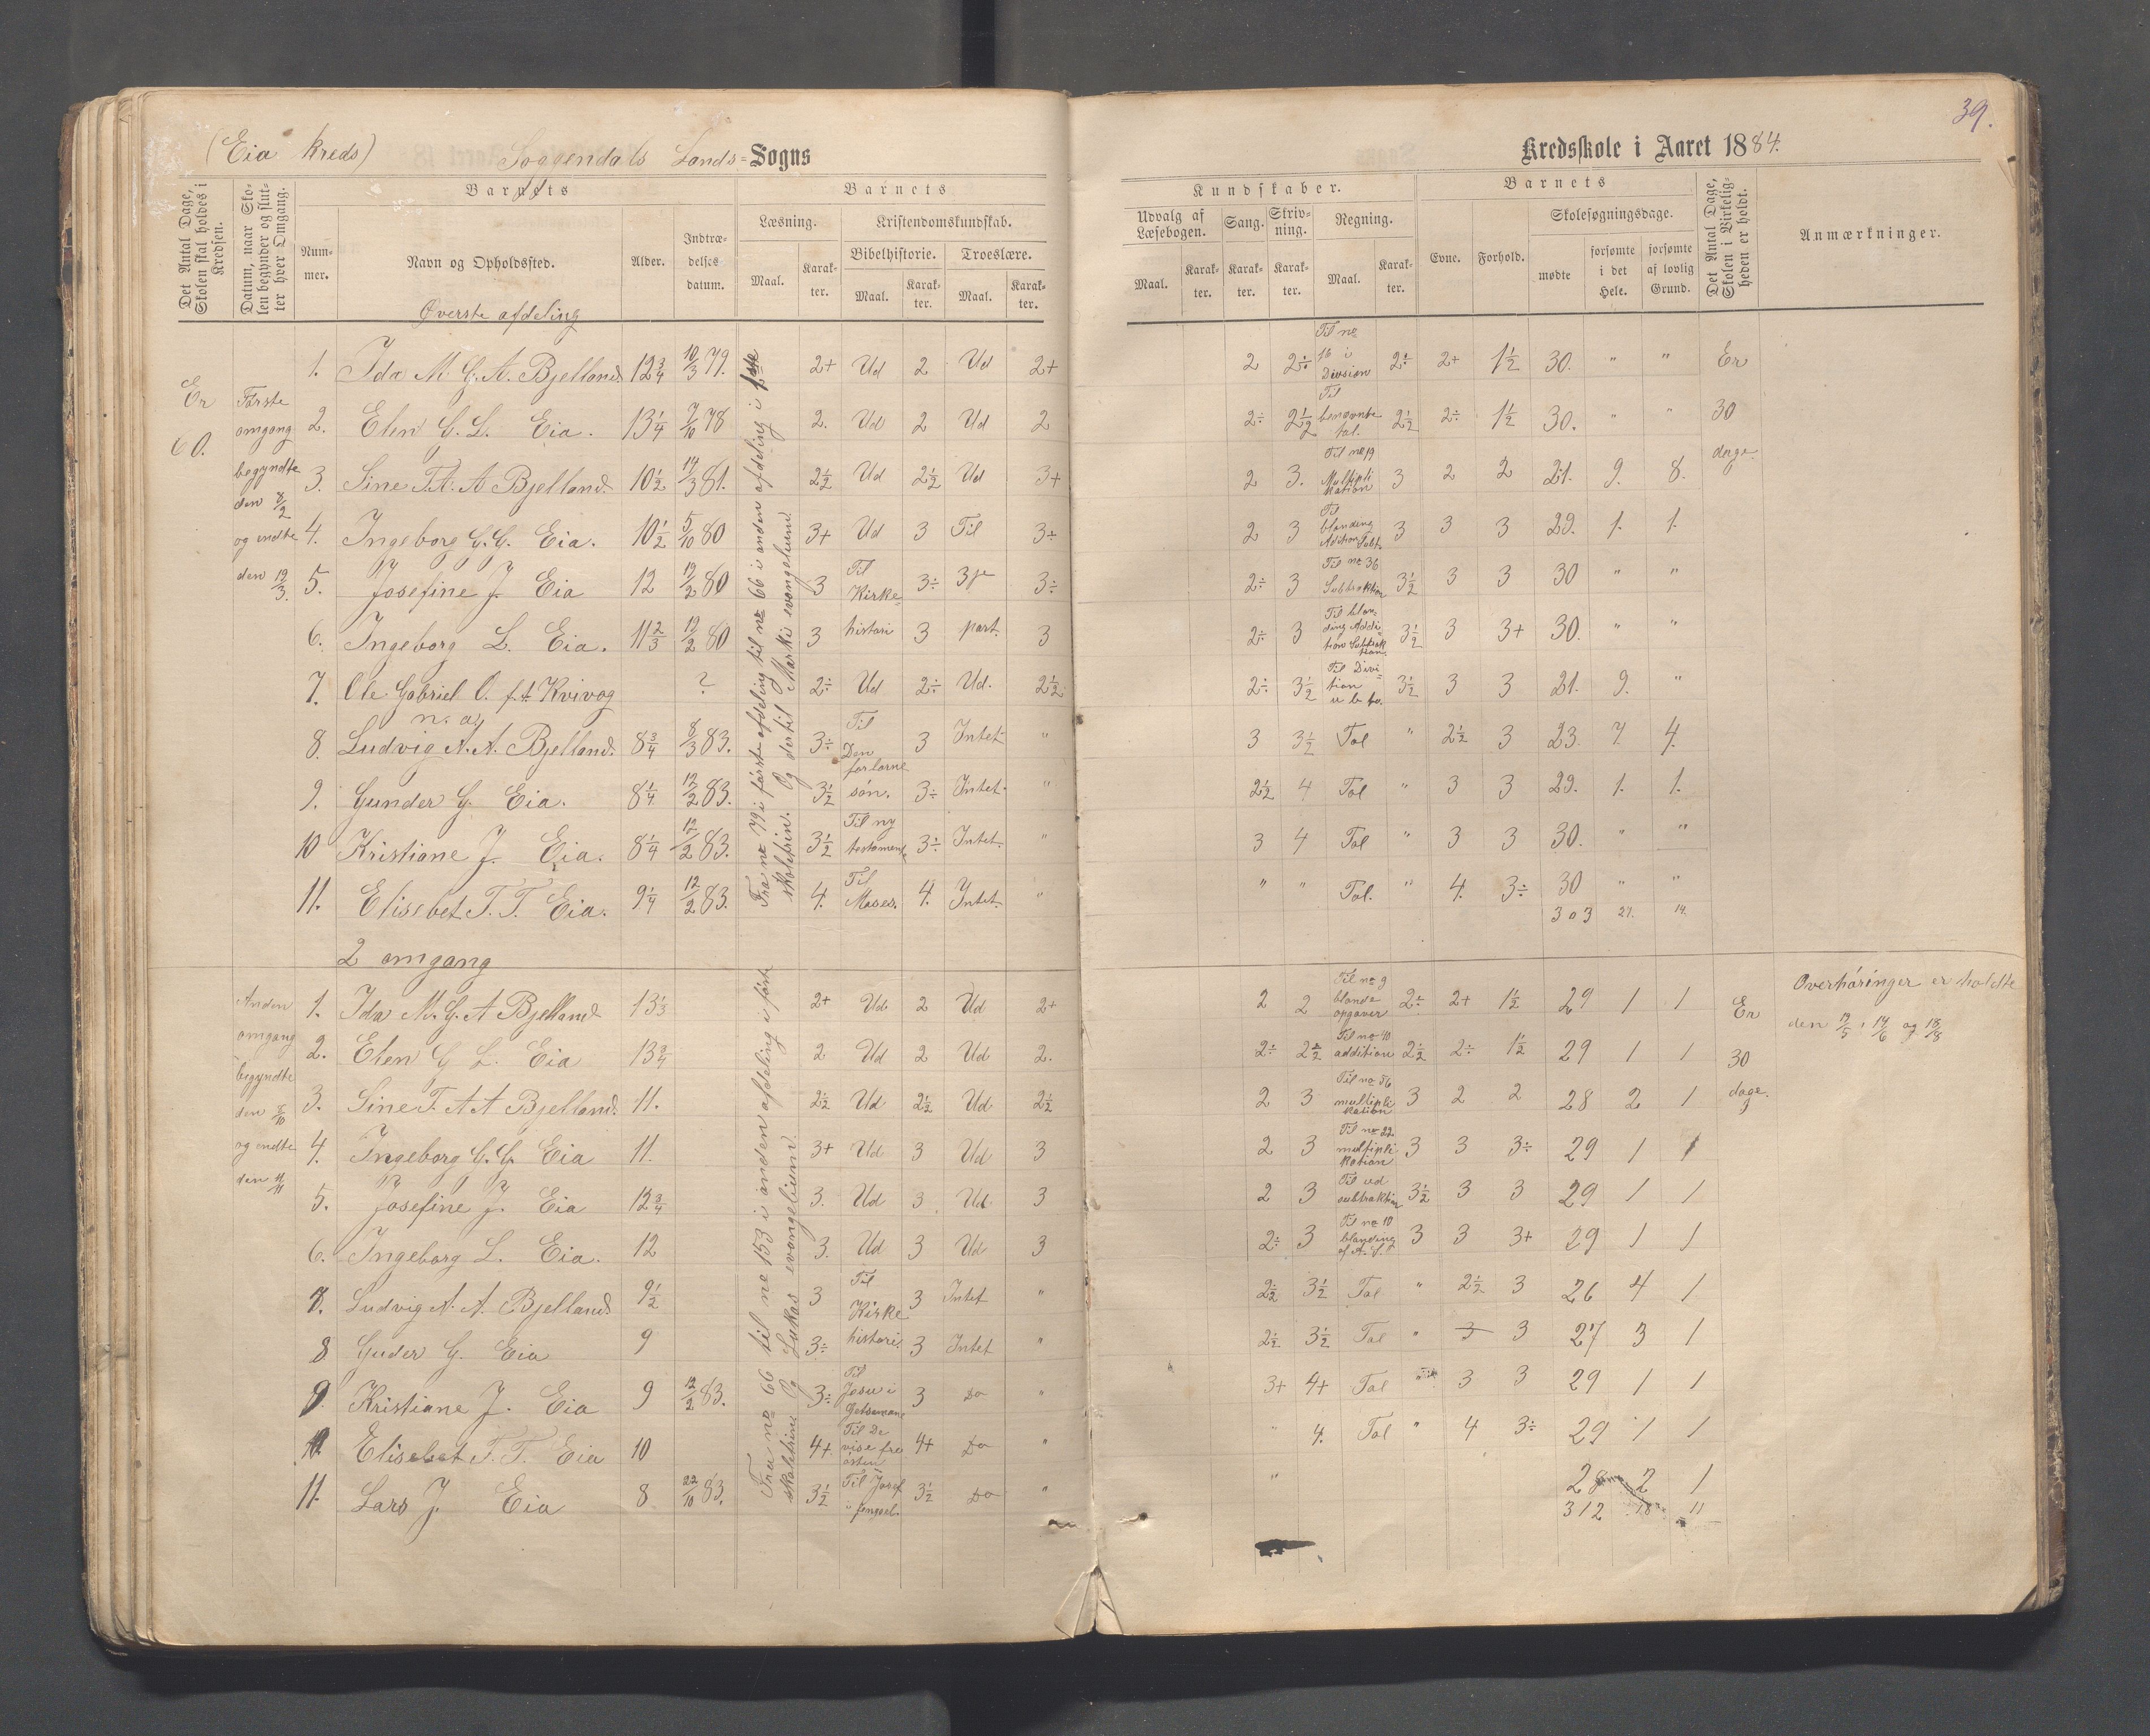 39.
(Eia kreds) Soggendals Lands= Sogns
Kredsskole i Aaret 1884.
Det Antal Dage, Skolen skal holdes i Kredsen.
Datum, naar Skolen begynder og slutter hver Omgang.
Barnets
Nummer.
Navn og Opholdssted.
Alder.
Indtrædelses datum.
Barnets
Læsning.
Maal.
Karakter.
Kristendomskundskab.
Bibelhistorie.
Maal.
Karakter.
Troeslære.
Maal.
Karakter.
Kundskaber.
Udvalg af Læsebogen.
Maal.
Karakter.
Sang.
Karakter.
Skrivning.
Karakter.
Regning.
Maal.
Karakter.
Barnets
Evne.
Forhold.
Skolesøgningsdage.
mødte
forsømte i det Hele.
forsømte af lovlig Grund.
Det Antal Dage, Skolen i Virkeligheden er holdt.
Anmærkninger.
Øverste afdeling
Er 60.
Første omgang begyndte den 8/2 og endte den 19/3.
Fra no 79 i første afdeling til no 66 i anden afdeling i første skoletrin. Og dertil Marki evangelium.
1. Ida M. G. A. Bjelland 12 3/4 10/3 79. 2+ Ud 2 Ud 2+ 2 2÷ Til no 16 i Division 2÷ 2+ 1 1/2 30. " " Er
2. Elen G. L. Eia. 13 1/4 7/10 78 2. Ud 2 Ud 2 2÷ 2 1/2 Til benævnte tal. 2 1/2 2÷ 1 1/2 30. " " 30
3. Sine T. A. A Bjelland. 10 1/2 14/3 81. 2 1/2 Ud 2 1/2 Ud 3+ 2 3. Til no 19 Multiplikation 3 2 2 21. 9. 8. dage.
4. Ingeborg G. G. Eia. 10 1/2 5/10 80 3+ Ud 3 Til 3÷ 2 3 Til blanding Adition Subt. 3 3 3 29. 1. 1.
5. Josefine J. Eia 12 12/2 80 3 Til Kirke= 3÷ 3je 3÷ 2÷ 3 Til no 36 Subtraktion 3 1/2 3 3 30 " "
6. Ingeborg L. Eia. 11 2/3 12/2 80 3 histori 3 part. 3 2÷ 3 Til blanding Addition Subtraktion 3 1/2 3 3+ 30. " "
7. Ole Gabriel O. f.t. Kvivog ? 2÷ Ud 2÷ Ud. 2 1/2 2÷ 3 1/2 Til Divition 3 1/2 3 3 21. 9. "
8. Ludvig A. A. Bjelland. 8 3/4 8/3 83. 3÷ Til Den forlorne 3 Intet " 3 3 1/2 Tal " 2 1/2 3 23. 7. 4.
9. Gunder G. Eia. 8 1/4 12/2 83. 3 1/2 søn. 3÷ Intet. " 2 1/2 4 Tal " 3 3 29. 1. 1.
10 Kristiane J. Eia. 8 1/4 12/2 83. 3 1/2 Til ny testamente 3÷ Intet. " 3 4 Tal " 3 3 30. " "
11. Elisebet T. T. Eia. 9 1/4 12/2 83. 4. Til Moses. 4. Intet. " " " Tal. " 4. 3÷ 30 " "
303 27. 14.
2 omgang
Anden omgang begyndte den 8/10 og endte den 11/11
Fra no 66 til no 153 i anden afdeling i første skoletrin Og Lukas evangelium.
1. Ida M. G. A Bjelland 13 1/3 2+ Ud 2 Ud 2+ 2 2 Til no 9 blande opgaver 2÷ 2+ 1 1/2 29 1 1 Er
Overhøringer er holdte
den 19/5, 14/6 og 18/8
2. Elen G L. Eia 13 3/4 2 Ud 2 Ud 2. 2÷ 2 1/2 Til no 40 addition 2 1/2 2÷ 1 1/2 29 1 1 30
3. Sine T. A A Bjelland. 11. 2 1/2 Ud 2 1/2 Ud 2 1/2 2 3 Til no 56 multiplikation 3 2 2 28 2 1 dage.
4. Ingeborg G. G. Eia 11. 3+ Ud 3 Ud 3 2 3 Til no 22. multiplikation 3 3 3÷ 29 1 1
5. Josefine J. Eia 12 3/4 3. Ud 3. Ud 3 2 3 Til ud subtraktion 3 1/2 3 3 29 1 1
6. Ingeborg L. Eia. 12 3. Ud 3 Ud 3 2÷ 3 Til no 10 blanding af A. S. 3 3 3+ 29 1 1
7. Ludvig A. A. Bjelland 9 1/2 3 Til Kirke 3 Intet " 2 1/2 3 1/2 Tal " 2 1/2 3 26 4 1
8 Guder G. Eia 9 3÷ histori. 3 Intet " 2 1/2 3 1/2 Tal " 3 3 27 3 1
9. Kristiane J. Eia 9 12/2 83. 3÷ Til Jesu i Getsemane 3 Do " 3+ 4+ Tal " 3 3 29 1 1
10. Elisebet T. T. Eia 10 4+ Til De vise fra østen 4+ Do " " 4. Tal " 4 3÷ 29 1 1
11. Lars J. Eia 8 22/10 83. 3 1/2 Til Josef i fengsel. 3 1/2 Do " " 28 2 1
312 18 11